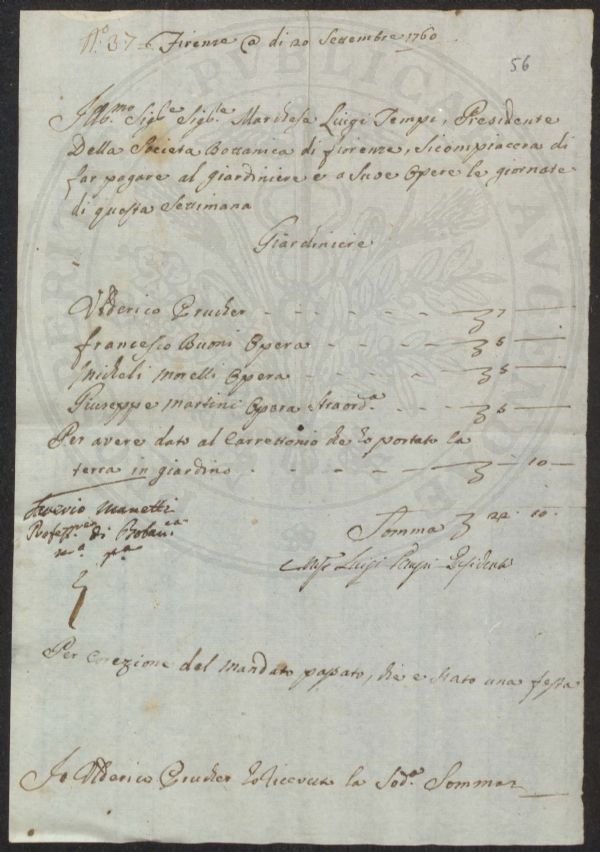 N.º 37 Firenze @ di 20 Settembre 1760
56
Ill.mo Sig.re Sig.re Marchese Luigi Tempi, Presidente
Della Societa Bottanica di fiorenze, Sicompiacera di
far pagare al giardiniere e a Suoe Opere le giornate
di questa Settimana
Giardiniere
Ulderico Prucher - - - - - - - 7 —
francesco Buoni Opera - - - - 5 —
Micheli Morelli Opera - - - - 5 —
Giuseppe Martini Opera Straord.a - - 5 —
Per avere dato al Carrettonio che to portato la
terra in giardino - - - - - — 10 —
Saverio Manetti
Profess.re di Botan.ca
m.o p.a
Somma 22 10
Luigi Tempi Presidente
Per Corezione del Mandato passato, che e Stato una festa
Io Ulderico Prucher ho riceuta la Sod.a Somma